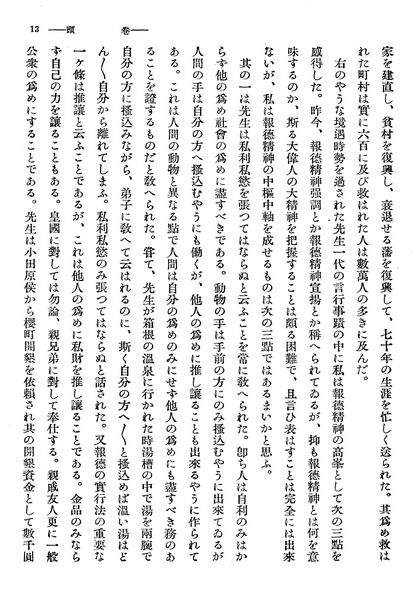 13 ――頭　　　卷――
家を建直し、貧村を復興し、衰退せる藩を復興して、七十年の生涯を忙しく送られた。其爲め救は
れた町村は實に六百に及び救はれた人は數萬人の多きに及んだ。
右のやうな境遇時勢を過された先生一代の言行事蹟の中に私は報德精神の高峯として次の三點を
感得した。昨今、報德精神强調とか報德精神宣揚とか稱へられてゐるが、抑も報德精神とは何を意
味するのか、斯る大偉人の大精神を把握することは頗る困難で、且言ひ表はすことは完全には出來
ないが、私は報德精神の中樞中軸を成せるものは次の三點ではあるまいかと思ふ。
其の一は先生は私利私慾を張つてはならぬと云ふことを常に敎へられた。卽ち人は自利のみはか
らず他の爲め社會の爲めに盡すべきである。動物の手は手前の方にのみ搔込むやうに出來てゐるが
人間の手は自分の方へ搔込むやうにも働くが、他人の爲めに推し讓ることも出來るやうに作られて
ある。これは人間の動物と異なる點で人間は自分の爲めのみにせず他人の爲めにも盡すべき務のあ
ることを證するものだと敎へられた。嘗て、先生が箱根の溫泉に行かれた時湯槽の中で湯を兩腕で
自分の方に搔込みながら、弟子に敎へて云はれるのに、斯く自分の方へ〱と搔込めば溫い湯はど
ん〱自分から離れてしまふ。私利私慾のみ張つてはならぬと話された。又報德の實行法の重要な
一ヶ條は推讓と云ふことであるが、これは他人の爲めに私財を推し讓ることである。金品のみなら
ず自己の力を讓ることもある。皇國に對しては勿論、親兄弟に對して奉仕する。親戚友人更に一般
公衆の爲めにすることである。先生は小田原侯から櫻町開墾を依賴され其の開墾資金として數千圓